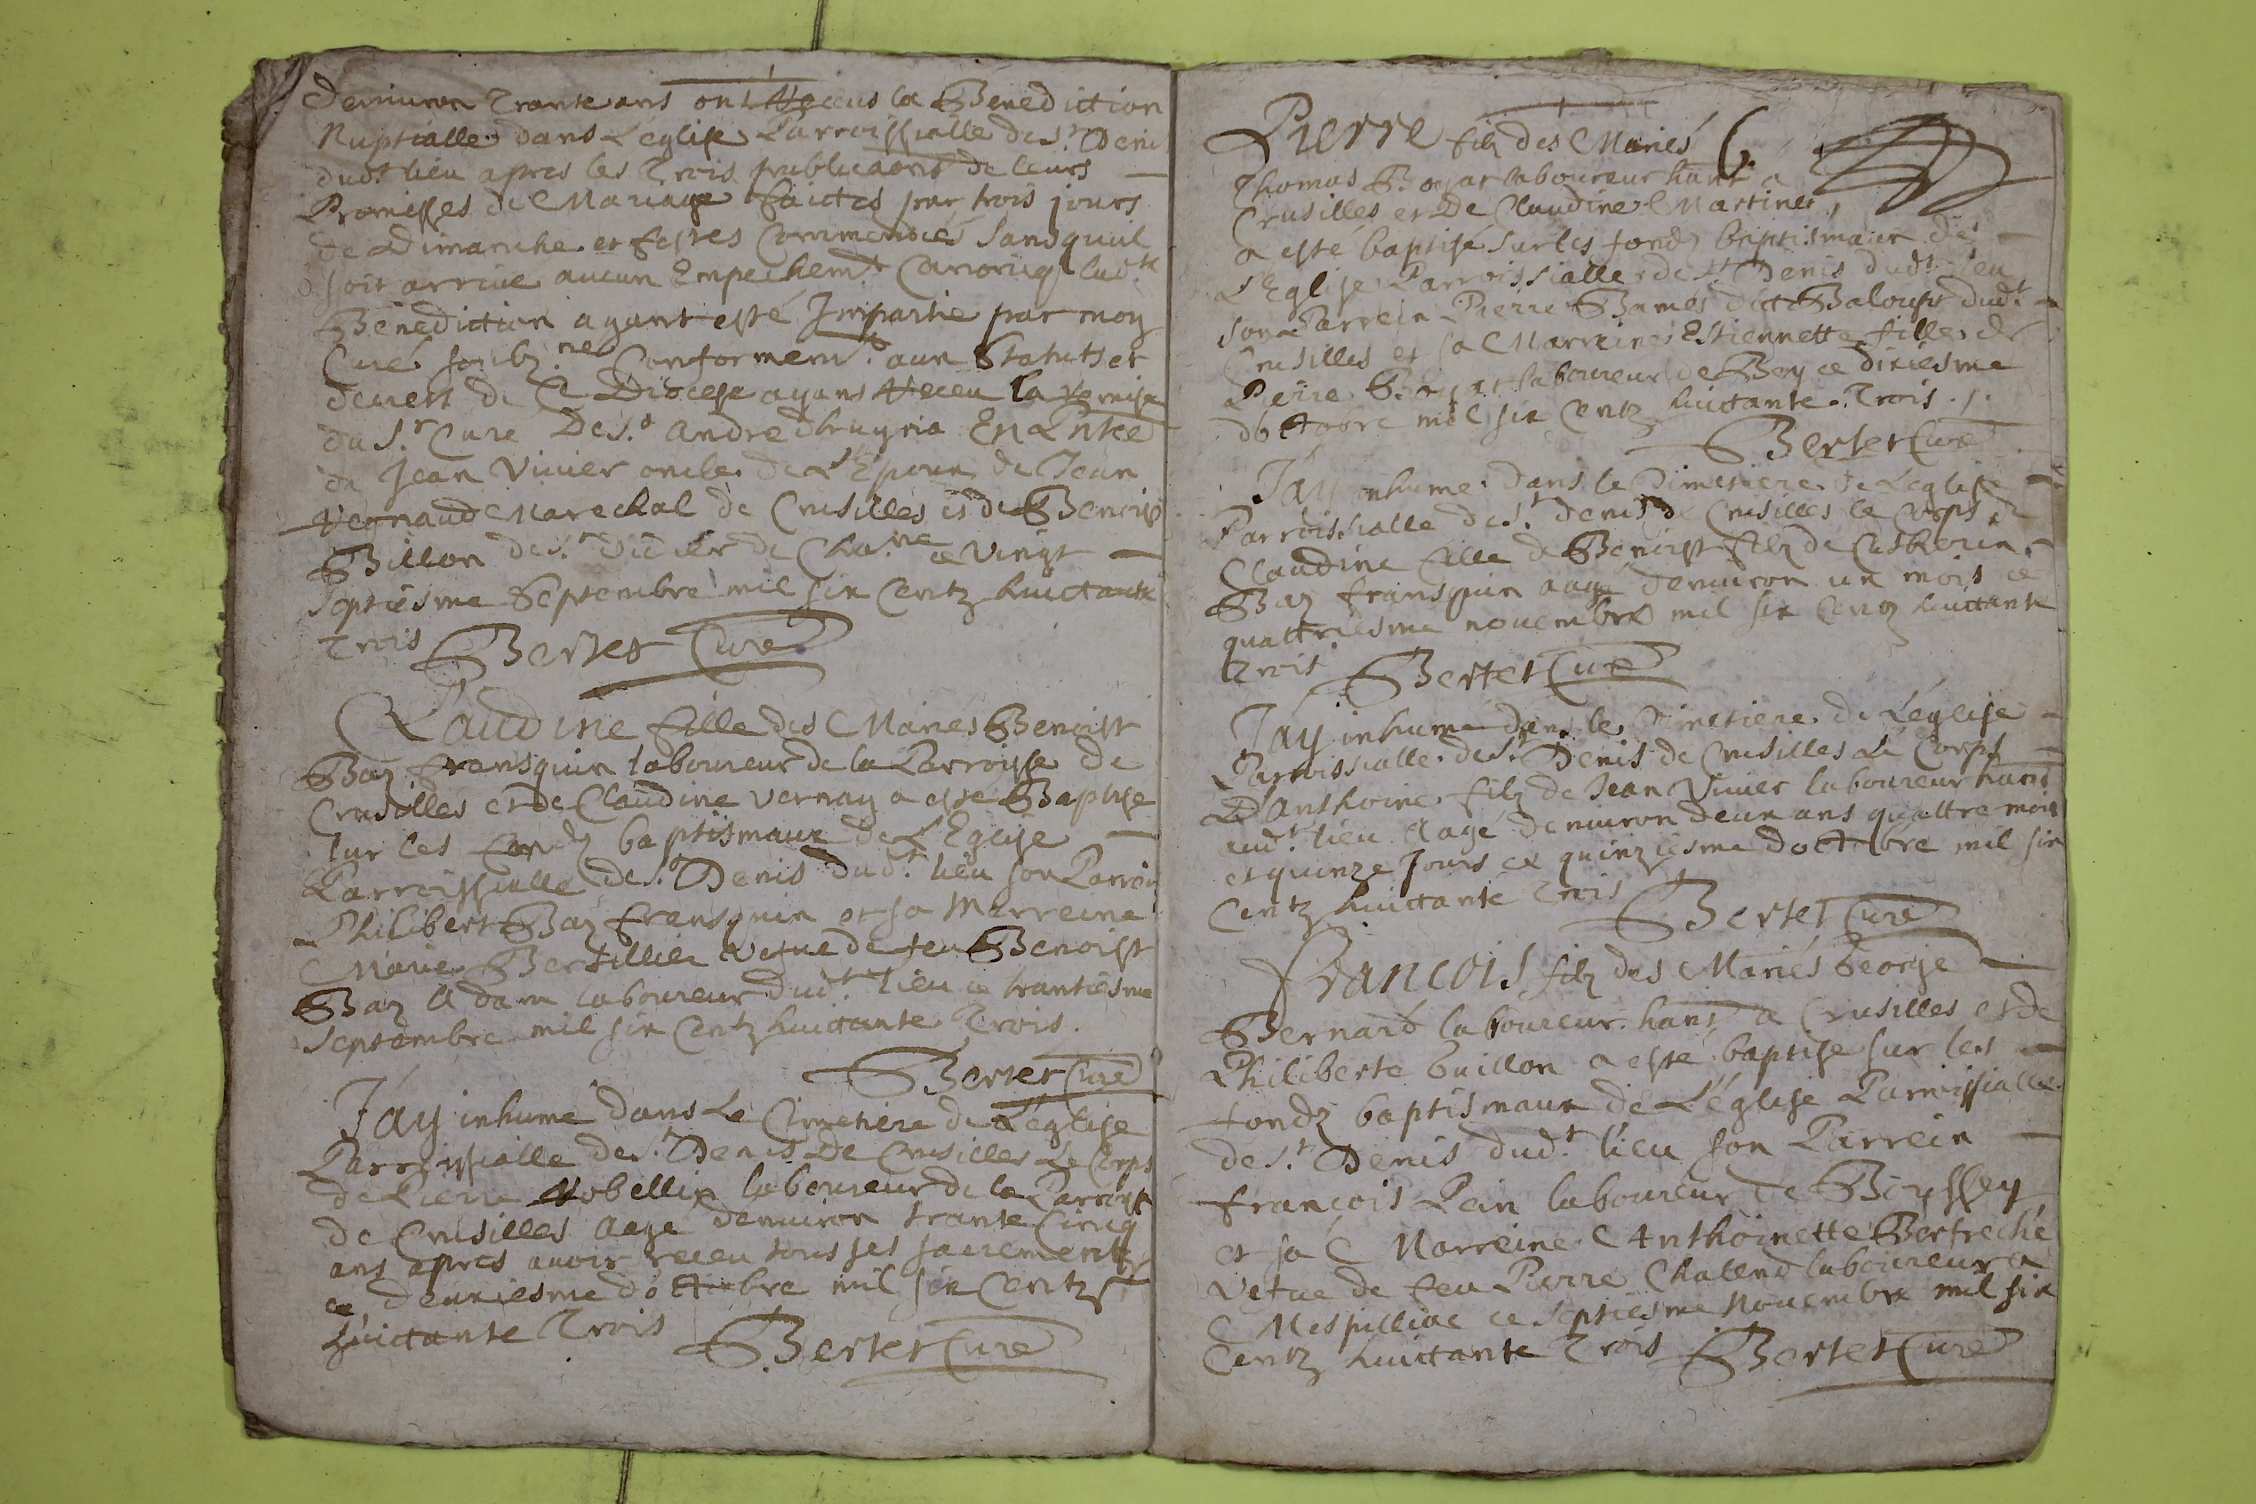 denuiron Trante ans ont Receus la Benediction
Nuptialle dans L'eglise Parroissialle de S.t Deni
dud.t lieu apres les Trois publicaons de leurs
Promisses de Mariage faictes par trois jours
de Dimanche et festes Commendés sans quil
soit arriué aucun Empechem.t Canonicq lad.te
Benediction ayant esté Impartie par moy
Curé soubz.né Conformem.t aux Statuts et
decrets de Ce Diocese ayans Receu la Remise
du S.r Cure De S.t André En
de Jean Viuier oncle de L'Epoux de Jean
Regnaud Marechal de Crusilles et de Benoist
Billon de ce Vingt
Septiesme Septembre mil six Centz huictante
Trois Bertet Curé
Claudine fille des Mariés Benoist
Baz fransquin laboureur de la Parroisse de
Crusilles et de Claudine Vernay a esté Baptisé
sur les fondz baptismaux de L'Eglise
Parroissialle de S.t Denis dud.t lieu son Parrein
Philibert Baz fransquin et sa Marreine
Marie Bertillier Vefue de feu Benoist
Baz Adam laboureur dud.t lieu ce trantiesme
Septembre mil six Centz huictante Trois.
Bertet Curé
Jay inhumé dans Le Cimetiere de L'eglise
Parroissialle de S.t Denis De Crusilles Le Corps
de Pierre Robellin laboureur de la Parroisse
de Crusilles aagé denuiron trante Cincq
ans apres auoir receu tous ses sacrements
ce deuxiesme doctobre mil six Centz
huictante Trois Bertet Curé
Pierre filz des Mariés
Thomas Boyat laboureur hant a
Crusilles et De Claudine Martinet
a esté baptisé sur les fondz baptismaux de
L'Eglise Parroissialle de S.t Denis dud.t lieu
son Parrein Pierre dud.t
Crusilles et sa Marreine Estiennette fille de
Pierre Boyat laboureur de Bey ce dixiesme
doctobre mil six Centz huictante Trois.
Bertet Curé
Jay inhumé dans le Cimetiere de L'eglise
Parroissialle de S.t denis de Crusilles le Corps de
Claudine fille de Benoist filz de
Baz fransquin aagé denuiron un mois ce
quattriesme nouembre mil six Centz huictante
Trois Bertet Curé
Jay inhumé dans le Cimetiere de L'eglise
Parroissialle de S.t Denis de Crusilles Le Corps
D'Anthoine filz de Jean Viuier laboureur hant
aud.t lieu Aagé denuiron deux ans quattre mois
et quinze Jours ce quinziesme doctobre mil six
Centz huictante Trois
Bertet Curé
François filz des Mariés George
Bernard laboureur hant a Crusilles et de
Philiberte Guillon a esté baptisé sur les
fondz baptismaux de L'église Parroissialle
de S.t Denis dud.t lieu son Parrein
François Pein laboureur de Boissey
et sa Marreine Anthoinette Bertreché
Vefue de feu Pierre Challend laboureur a
Mespilliac ce septiesme Nouembre mil six
Centz huictante Trois Bertet Curé